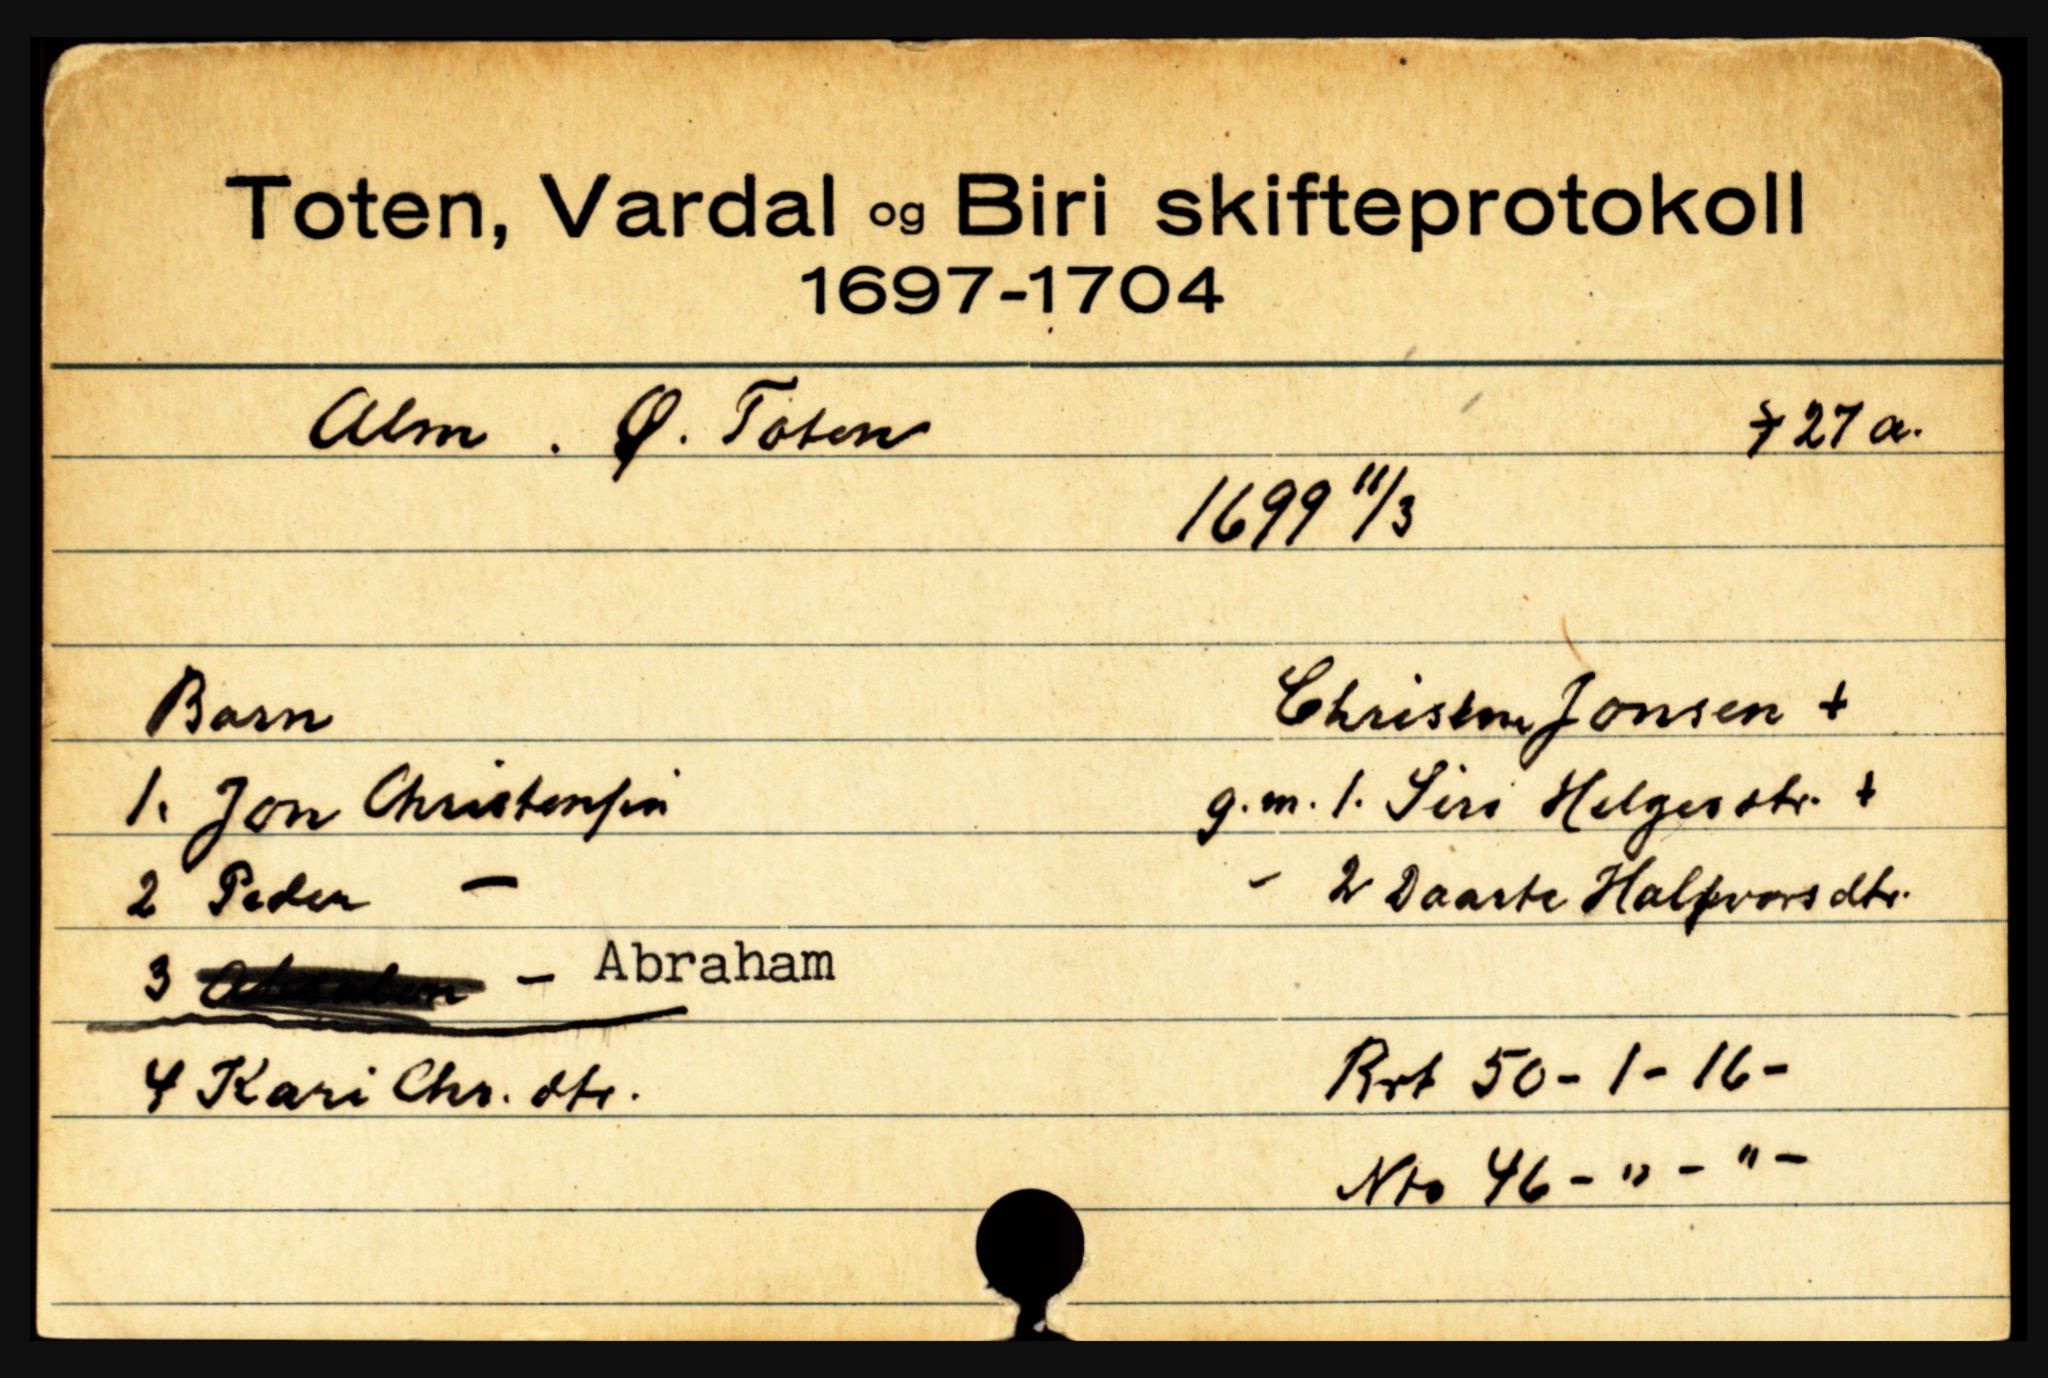 Toten, Vardal og Biri skifteprotokoll
1697-1704
Alm . Ø. Toten
7 27 a.
1699 11/3
Barn
Christen Jonsen +
1. Jon Christensen
g.m. 1. Siri Helgesdtr. +
2 Peder -
- 2 Daarte Halfvorsdtr.
3 - Abraham
4 Kari Chr. dtr.
Brt 50 - 1 - 16 -
Nto 46 - " - " -